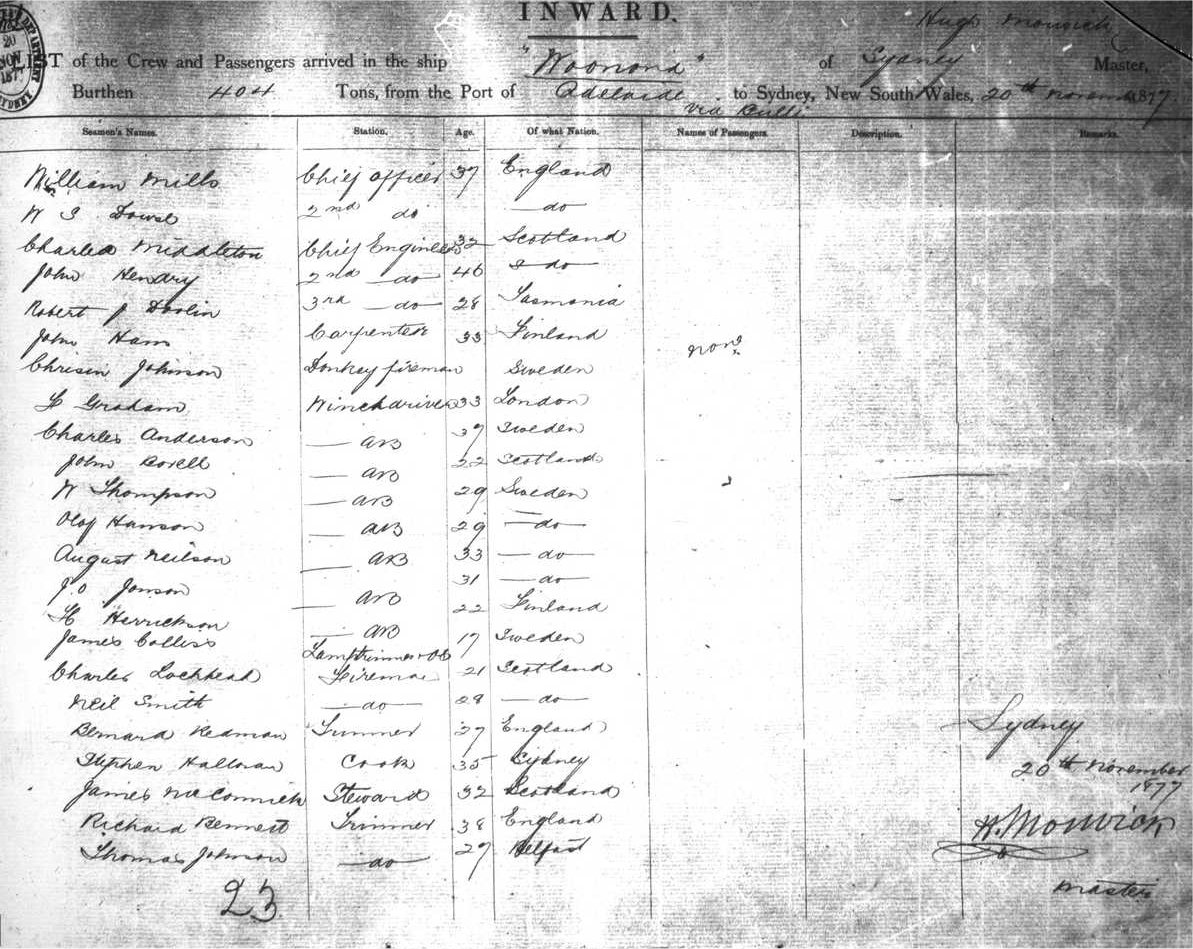 INWARD.
Hugh Monwick
LIST of the Crew and Passengers arrived in the ship "Woonona" of Sydney Master,
Burthen 404 Tons, from the Port of Adelaide to Sydney, New South Wales, 20th November 1877
via Bulli
Seamen's Names. Station. Age. Of what Nation. Names of Passengers. Description. Remarks.
William Mills Chief Officer 37 England
W S Dowse 2nd do — do —
Charles Middleton Chief Engineer 32 Scotland
John Hendry 2nd — do — 46 do —
Robert J Devlin 3rd — do — 28 Tasmania
John Ham Carpenter 33 Finland
none
Chrisen Johnson Donkey fireman Sweden
Graham Winchdriver 33 London
Charles Anderson — AB 37 Sweden
John Bovell — AB 22 Scotland
W Thompson — AB 29 Sweden
Olof Hanson — AB 29 — do —
August Neilson — AB 33 — do —
J.O Jonson — AB 31 — do —
H Herrickson — AB 22 Finland
James Colliss Lamptrimmer + OS 17 Sweden
Charles Lochhead Fireman 21 Scotland
Neil Smith — do — 28 — do —
Bernard Redman Trimmer 27 England
Stephen Halloran Cook 35 Sydney
James McCormick Steward 32 Scotland
Richard Bennett Trimmer 38 England
Thomas Johnson — do — 27 Belfast
23
Sydney
20th November
1877
H. Monwick
Master